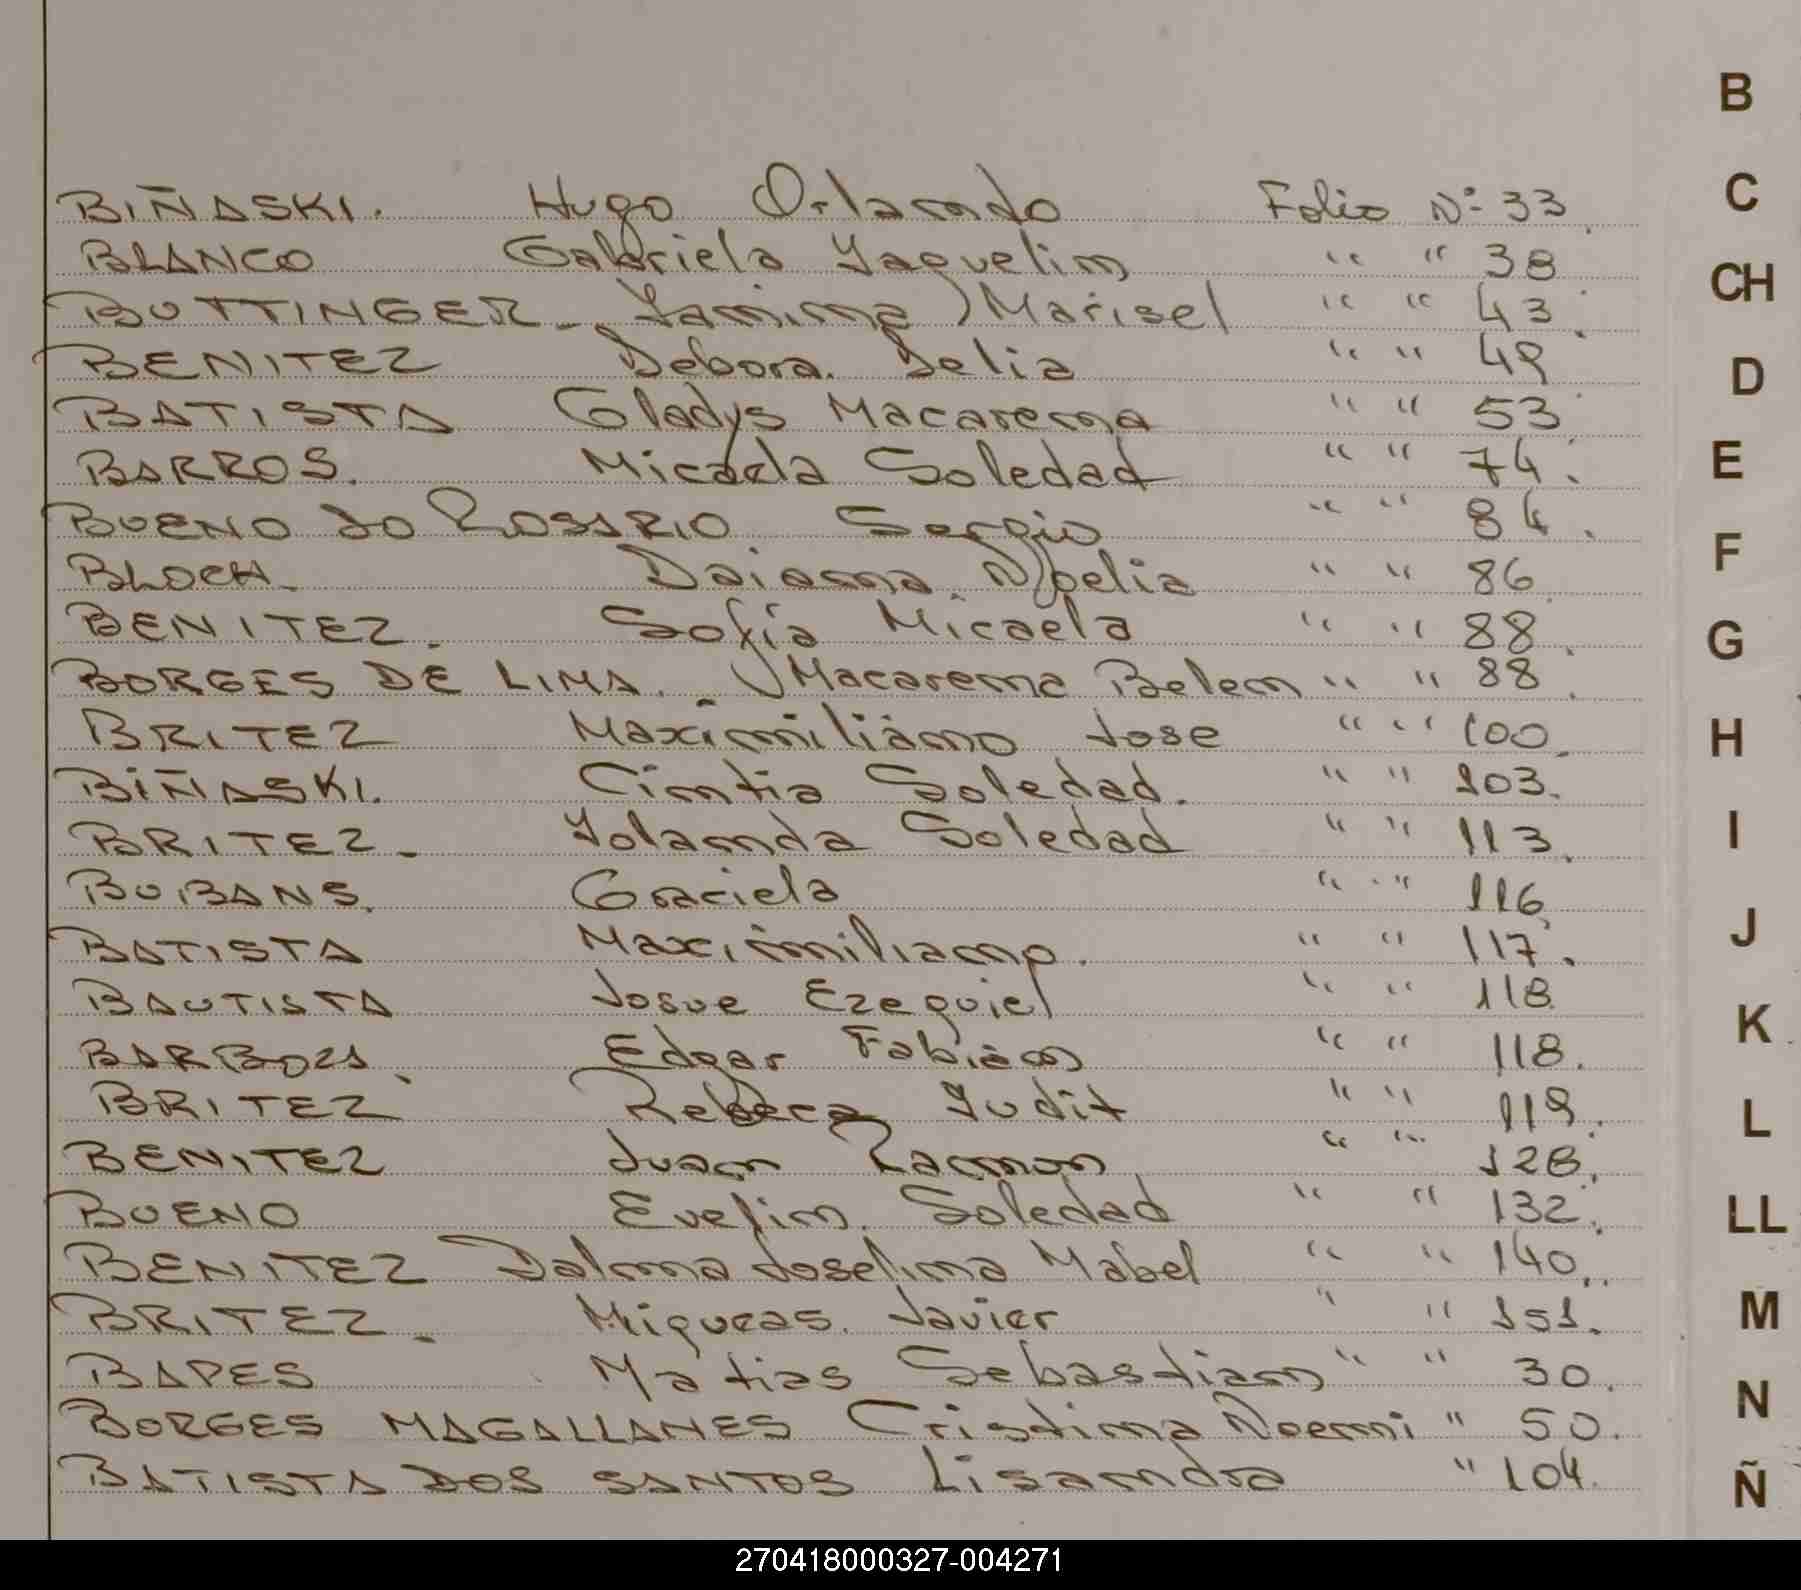 B
C
CH
D
E
F
G
H
I
J
K
L
LL
M
N
Ñ
BIÑASKI. Hugo Orlando Folio Nº 33
BLANCO Gabriela Yaquelin " " 38
BOTTINGER - Yanina Marisel " " 43.
BENITEZ Debora. Delia " " 49
BATISTA Gladys Macarena " " 53
BARROS. Micaela Soledad " " 74.
BUENO DO ROSARIO Sergio " " 84.
BLOCH. Daiana Noelia " " 86
BENITEZ. Sofía Micaela " " 88.
BORGES DE LIMA. Macarena Belen " " 88.
BRITEZ Maximiliano Jose " " 100.
BIÑASKI. Cintia Soledad. " " 103.
BRITEZ. Yolanda Soledad " " 113.
BUBANS. Graciela " " 116
BATISTA Maximiliano. " " 117.
BAUTISTA Josue Ezequiel " " 118
BARBOZA. Edgar Fabián " " 118.
BRITEZ Rebeca Yudit " " 119.
BENITEZ Juan Ramon " " 128.
BUENO Evelin. Soledad " " 132.
BENITEZ Dalma Joselina Mabel " " 140.
BRITEZ. Miqueas. Javier " " 151.
BAPES Matias Sebastian " " 30.
BORGES MAGALLANES Cristina Noemi " 50.
BATISTA DOS SANTOS Lisandra " 104.
270418000327-004271